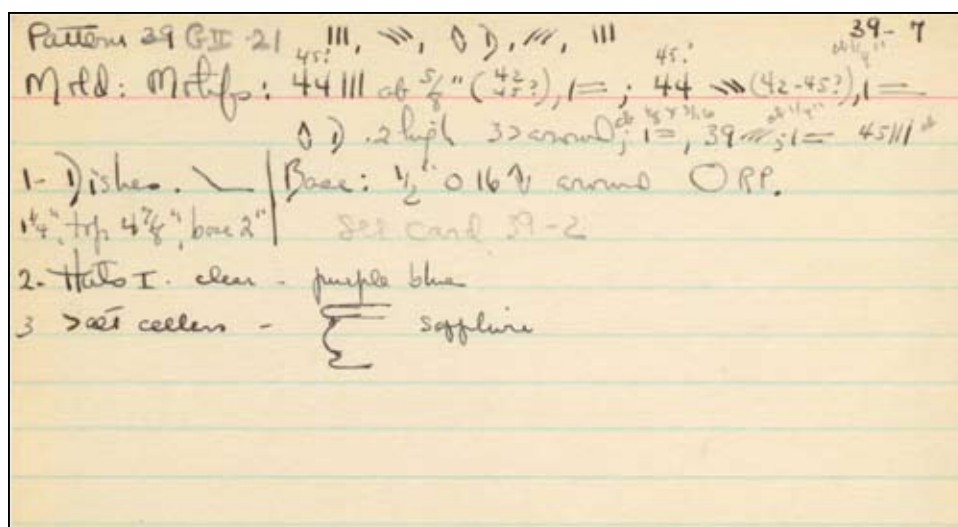 Pattern 39 GII-21 |||, \\\, ◊ D, ///, ||| 39-7
45? 45? ab 1/8"
Mold: Motifs: 44 ||| ab 5/8" (42 45?), 1=; 44 \\\ (42-45?), 1=
◊ D. 2 high 32 around; 1=, 39 ///; 1= 45 |||
1- Dishes. Base: 1/2" 0 16 around O RP.
1 1/4", top 4 7/8", base 2" See card 39-2
2- Hats I. clear - purple blue
3 Salt cellers - sapphire